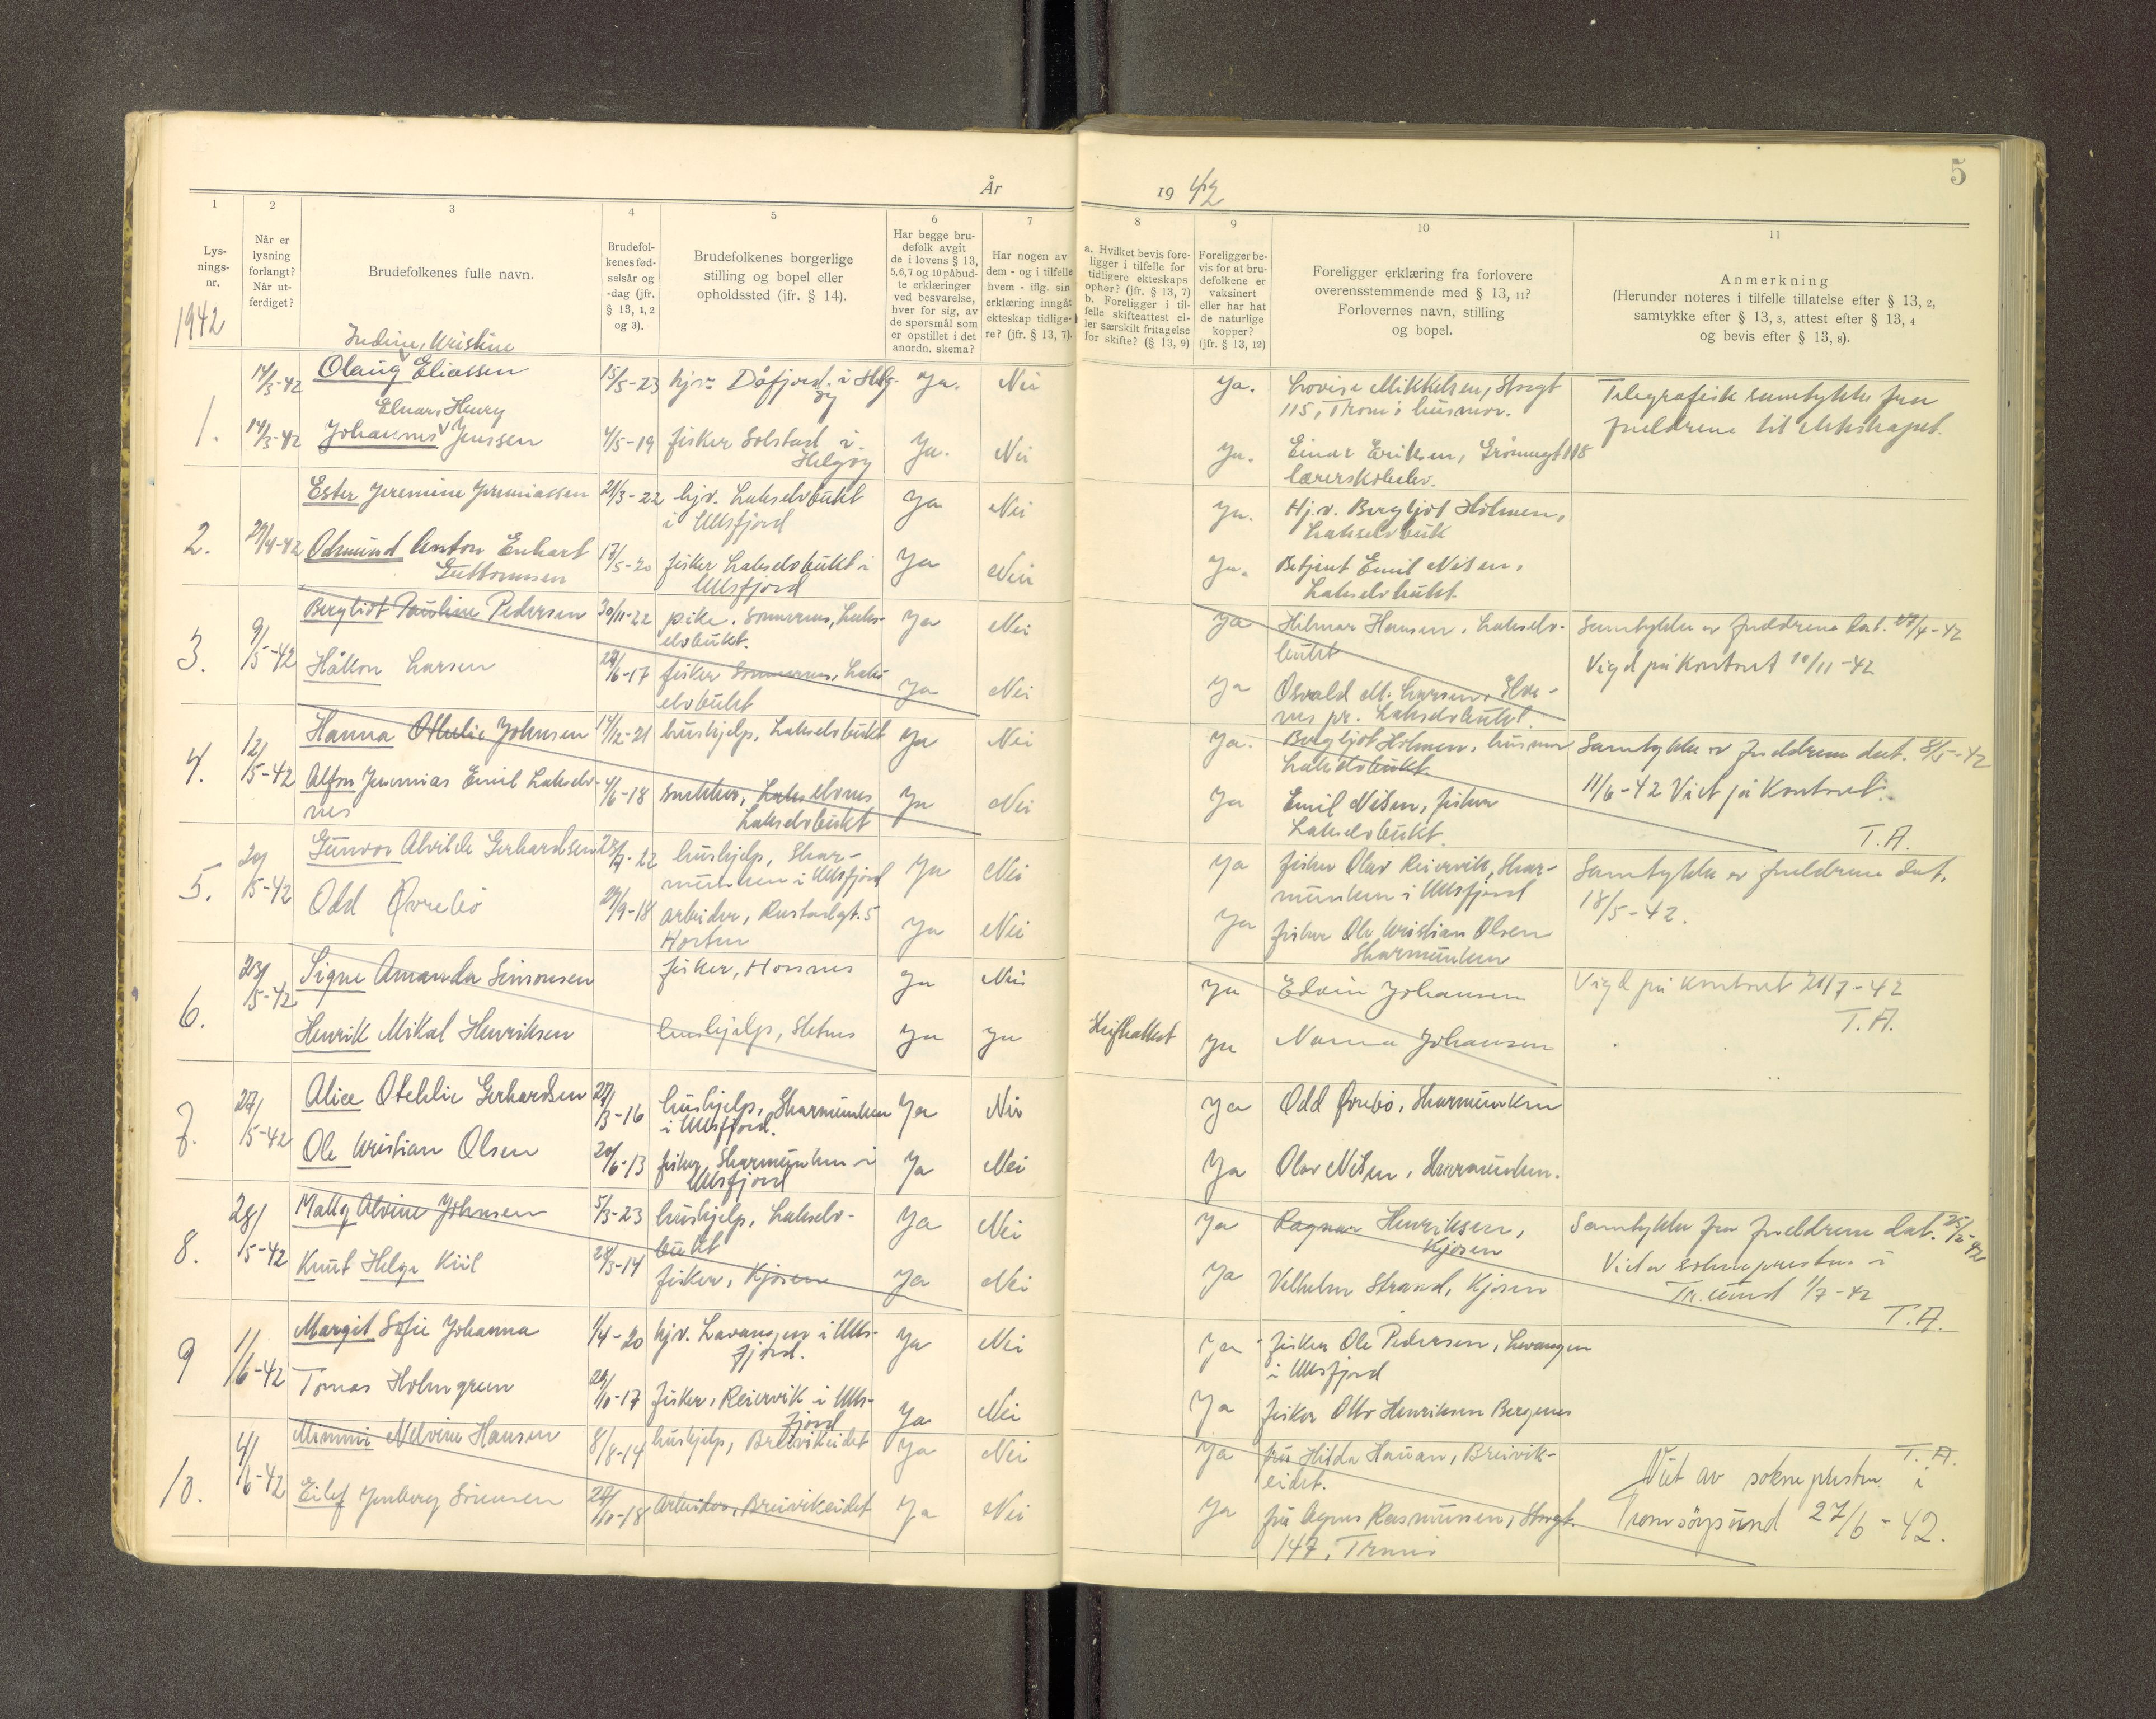 5
År 1942
1 2 3 4 5 6 7 8 9 10 11
Lys-
nings-
nr.
Når er
lysning
forlangt?
Når ut-
ferdiget?
Brudefolkenes fulle navn.
Brudefol-
kenes fød-
selsår og
-dag (jfr.
§ 13, 1, 2
og 3).
Brudefolkenes borgerlige
stilling og bopel eller
opholdssted (jfr. § 14).
Har begge bru-
defolk avgit
de i lovens § 13,
5,6,7 og 10 påbud-
te erklæringer
ved besvarelse,
hver for sig, av
de spørsmål som
er opstillet i det
anordn. skema?
Har nogen av
dem - og i tilfelle
hvem - iflg. sin
erklæring inngåt
ekteskap tidlige-
re? (jfr. § 13, 7).
a. Hvilket bevis fore-
ligger i tilfelle for
tidligere ekteskaps
ophør? (jfr. § 13, 7)
b. Foreligger i til-
felle skifteattest el-
ler særskilt fritagelse
for skifte? (§ 13, 9)
Foreligger be-
vis for at bru-
defolkene er
vaksinert
eller har hat
de naturlige
kopper?
(jfr. § 13, 12)
Foreligger erklæring fra forlovere
overensstemmende med § 13, 11?
Forlovernes navn, stilling
og bopel.
Anmerkning
(Herunder noteres i tilfelle tillatelse efter § 13, 2,
samtykke efter § 13, 3, attest efter § 13, 4
og bevis efter § 13, 8).
1942
Kristine
14/3-42 Olaug Eliassen 15/5-23 Dåfjord i Helg- Ja. Nei Ja. Lovise Mikkelsen, Storgt
øy 115, Tromsø husmor.
Telegrafisk samtykke fra
foreldrene til ekteskapet.
Einar Henry
1. 14/3-42 Johannes Jenssen 4/5-19 fisker Solstad i Ja. Nei Ja. Einar Eriksen, Grønnegt 118
Helgøy lærerskoleelev.
Ester Jeremine Jeremiassen 21/3-22 hjv. Lakselvbukt Ja Nei Ja. Hj.v. Bergljot Holmen,
i Ullsfjord Lakselvbukt
2. 29/4-42 Odmund Anton Enhart 17/5-20 fisker Lakselvbukt i Ja Nei Ja. Betjent Emil Nilsen,
Guttormsen Ullsfjord Lakselvbukt.
Bergliot Pauline Pedersen 30/11-22 pike. Sommernes, Laks- Ja Nei Ja Hilmar Hansen, Lakselv-
elvbukt. bukt
Samtykke av foreldrene dat. 27/4-42
Vigd på kontoret 10/11-42
3. 9/5-42 Håkon Larsen 27/6-17 fisker Sommernes, Laks- Ja Nei Ja Osvald M. Larsen,
elvbukt nes pr. Lakselvbukt.
Hanna Othelie Johnsen 14/12-21 hushjelp, Lakselvbukt Ja Nei Ja. Bergljot Holmen, husmor
Lakselvbukt.
Samtykke av foreldrene dat. 8/5-42
11/6-42 Viet på Kontoret.
T.A.
4. 12/5-42 Alfon Jeremias Emil Lakselv- 4/6-18 snekker, Lakselvnes Ja Nei Ja Emil Nilsen, fisker
nes Lakselvbukt Lakselvbukt.
Gunvor Alvilde Gerhardsen 23/7-22 hushjelp, Skar- Ja Nei Ja fisker Olav Reiervik, Skar-
munken i Ullsfjord munken i Ullsfjord
Samtykke av foreldrene dat.
18/5-42.
5. 20/5-42 Odd Øvrebø 29/9-18 arbeider, Rustadgt. 5 Ja Nei Ja fisker Ole Kristian Olsen
Horten Skarmunken
23/5-42 Signe Amanda Simonsen fisker, Ja Nei Ja Edvin Johansen
Vigd på kontoret 21/7-42
T.A.
6. Henrik Mikal Henriksen hushjelp, Ja Ja Skifteattest Ja Nanna Johansen
Alice Otehlie Gerhardsen 27/3-16 hushjelp, Skarmunken Ja Nei Ja Odd Øvrebø, Skarmunken
i Ullsfjord.
7. 27/5-42 Ole Kristian Olsen 20/6-13 fisker, Skarmunken i Ja Nei Ja Olav Nilsen, Skarmunken.
Ullsfjord
28/5-42 Malky Alvine Johnsen 5/3-23 hushjelp, Lakselv- Ja Nei Ja Ragnar Henriksen,
bukt Kjosen
Samtykke fra foreldrene dat. 25/5-42
Viet av soknepresten i
Tr.sund 1/7-42
T.A.
8. Knut Helge Kiil 28/3-14 fisker, Kjosen Ja Nei Ja Vilhelm Strand, Kjosen
Margit Sofie Johanna 1/4-20 hjv. Lavangen i Ulls- Ja Nei Ja fisker Ole Pedersen, Lavangen
fjord. i Ullsfjord
9 1/6-42 Tomas Holmgreen 29/10-17 fisker, Reiervik i Ulls- Ja Nei Ja fisker Otto Henriksen Bergenes
fjord
Mimmi Nelvine Hansen 8/8-14 hushjelp, Breivikeidet Ja Nei Ja fru Hilda Hauan, Breivik-
eidet.
T.A.
Viet av soknepresten i
Tromsøysund 27/6-42.
10. 4/6-42 Eilef Jenberg Sørensen 27/10-18 Arbeider, Breivikeidet Ja Nei Ja fru Agnes Rasmussen, Storgt.
147, Tromsø